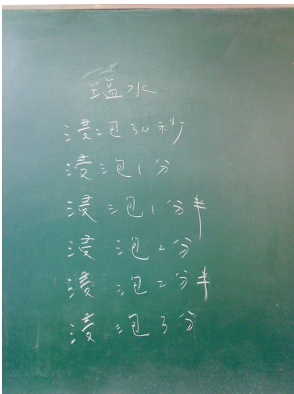 塩水
浸泡30秒
浸泡1分
浸泡1分半
浸泡2分
浸泡2分半
浸泡3分